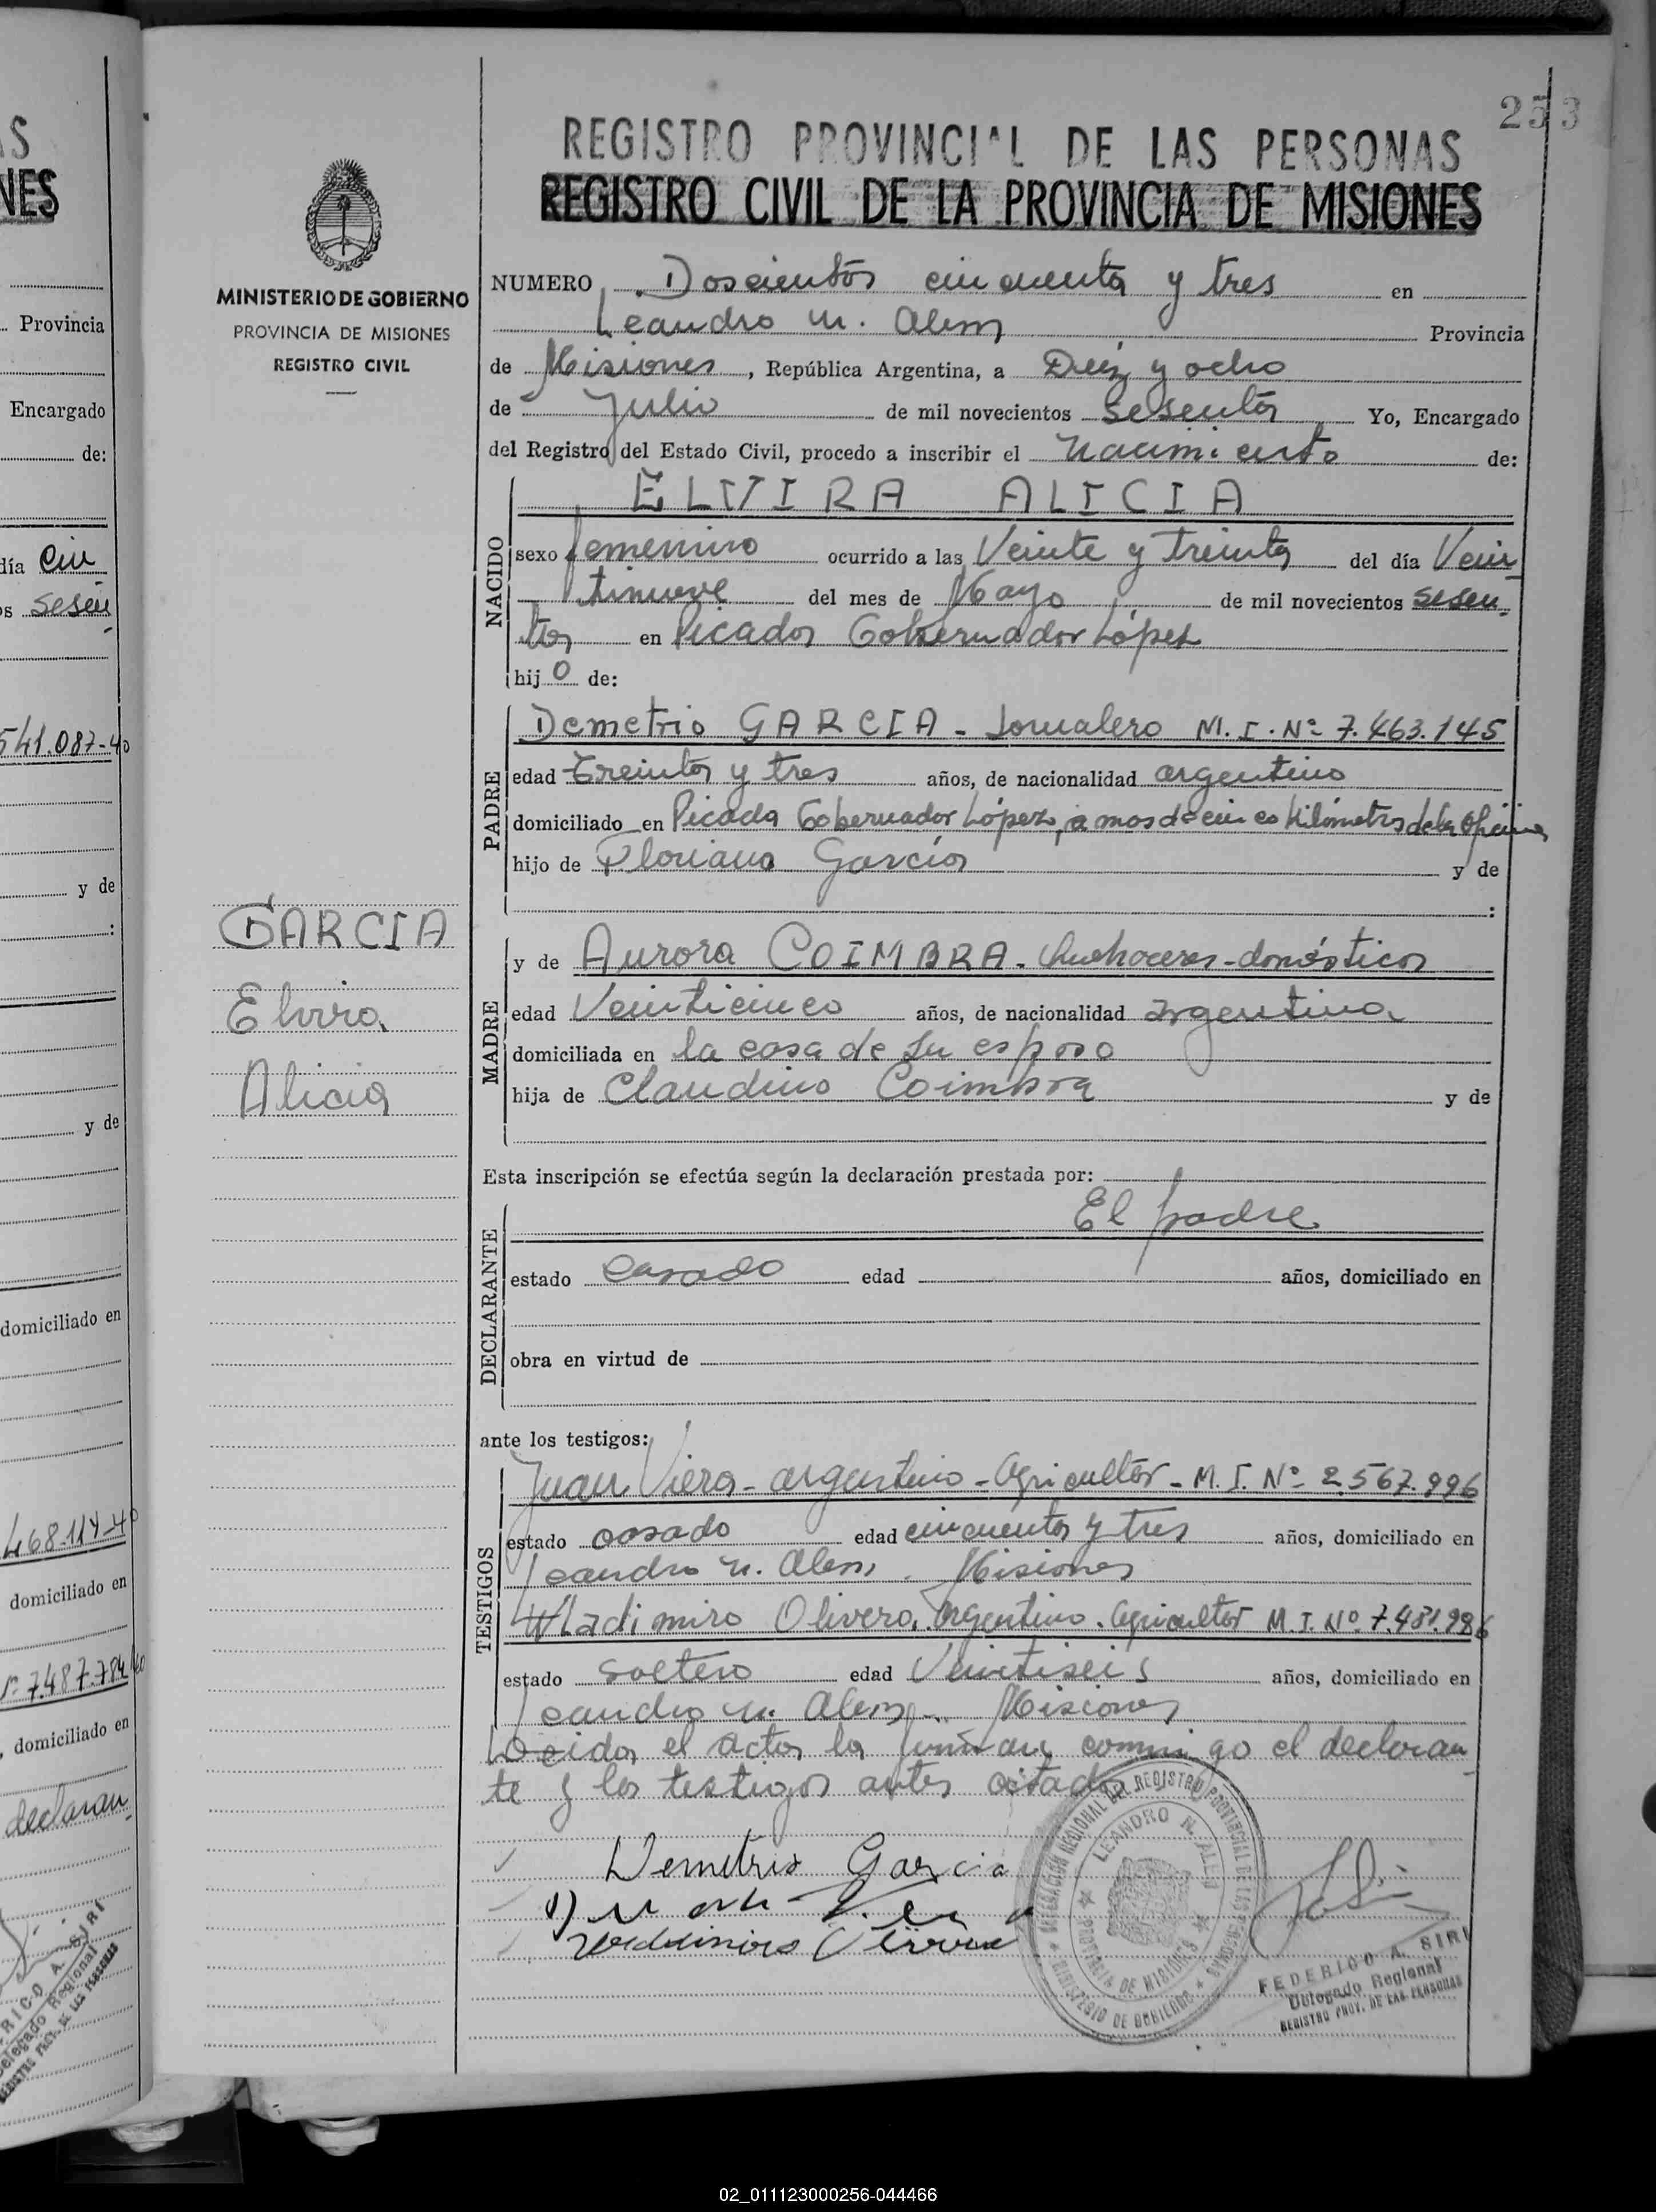 253
REGISTRO PROVINCIAL DE LAS PERSONAS
REGISTRO CIVIL DE LA PROVINCIA DE MISIONES
MINISTERIO DE GOBIERNO
PROVINCIA DE MISIONES
REGISTRO CIVIL
NUMERO Doscientos cincuenta y tres en
Leandro N. Alem Provincia
de Misiones, República Argentina, a Diez y ocho
de Julio de mil novecientos sesenta Yo, Encargado
del Registro del Estado Civil, procedo a inscribir el Nacimiento de:
NACIDO
ELVIRA ALICIA
sexo femenino ocurrido a las Veinte y treinta del día Vein
tinueve del mes de Mayo de mil novecientos sesen
ta en Picada Gobernador López
hijo de:
PADRE
Demetrio GARCIA - Jornalero M.I. Nº 7.463.145
edad Treinta y tres años, de nacionalidad argentino
domiciliado en Picada Gobernador López, a mas de cinco kilómetros de la oficina
hijo de Floriano García y de
:
GARCIA
Elvira
Alicia
MADRE
y de Aurora COIMBRA. Quehaceres-domésticos
edad Veinticinco años, de nacionalidad argentina
domiciliada en la casa de su esposo
hija de Claudino Coimbra y de
Esta inscripción se efectúa según la declaración prestada por:
DECLARANTE
El padre
estado casado edad años, domiciliado en
obra en virtud de
ante los testigos:
TESTIGOS
Juan Viera - argentino - Agricultor - M.I. Nº 2.567.996
estado casado edad cincuenta y tres años, domiciliado en
Leandro N. Alem. Misiones
Wladimiro Olivera. argentino. agricultor M.I. Nº 7.481.986
estado soltero edad Veintiseis años, domiciliado en
Leandro N. Alem. Misiones
Leida el acta la firman conmigo el declaran
te y los testigos antes citados
Demetrio Garcia
DELEGACION REGIONAL DEL REGISTRO PROVINCIAL DE LAS PERSONAS
LEANDRO N. ALEM
PROVINCIA DE MISIONES
MINISTERIO DE GOBIERNO
FEDERICO A. SIRI
Delegado Regional
REGISTRO PROV. DE LAS PERSONAS
S
NES
Provincia
Encargado
de:
día cin
s sesen
541.087-40
y de
:
y de
domiciliado en
468.114-40
domiciliado en
7.487.784
, domiciliado en
declaran
RICO A. SIRI
Delegado Regional
02_011123000256-044466